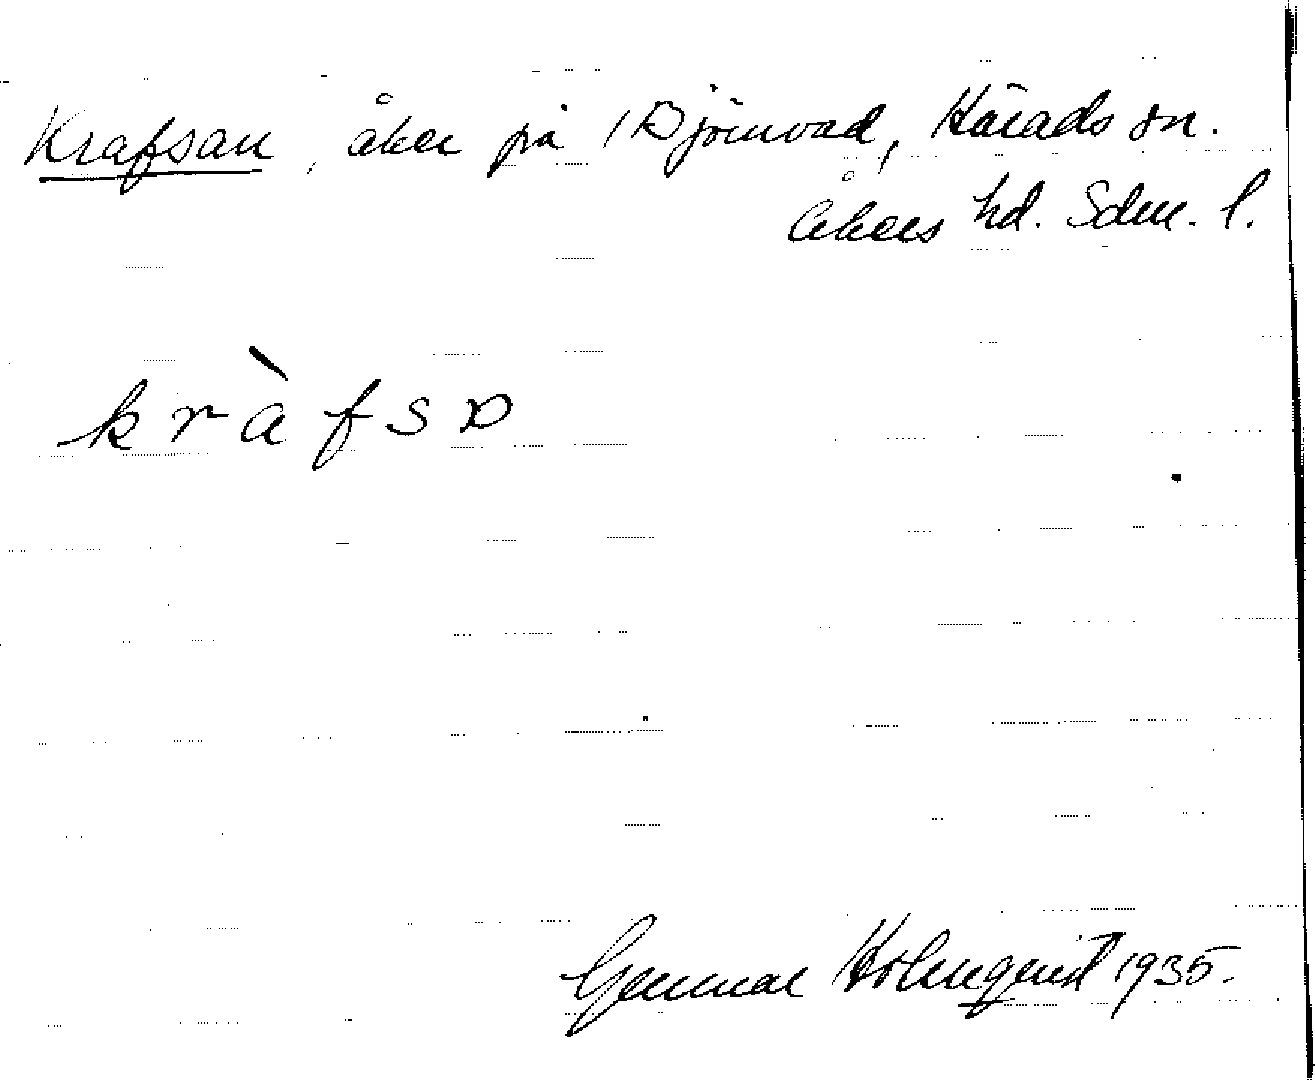 Krafsan, åker på Björnvad, Härads sn.
Åkers hd. Sdm. l.
kràfsɒ
Gunnar Holmquist 1935.